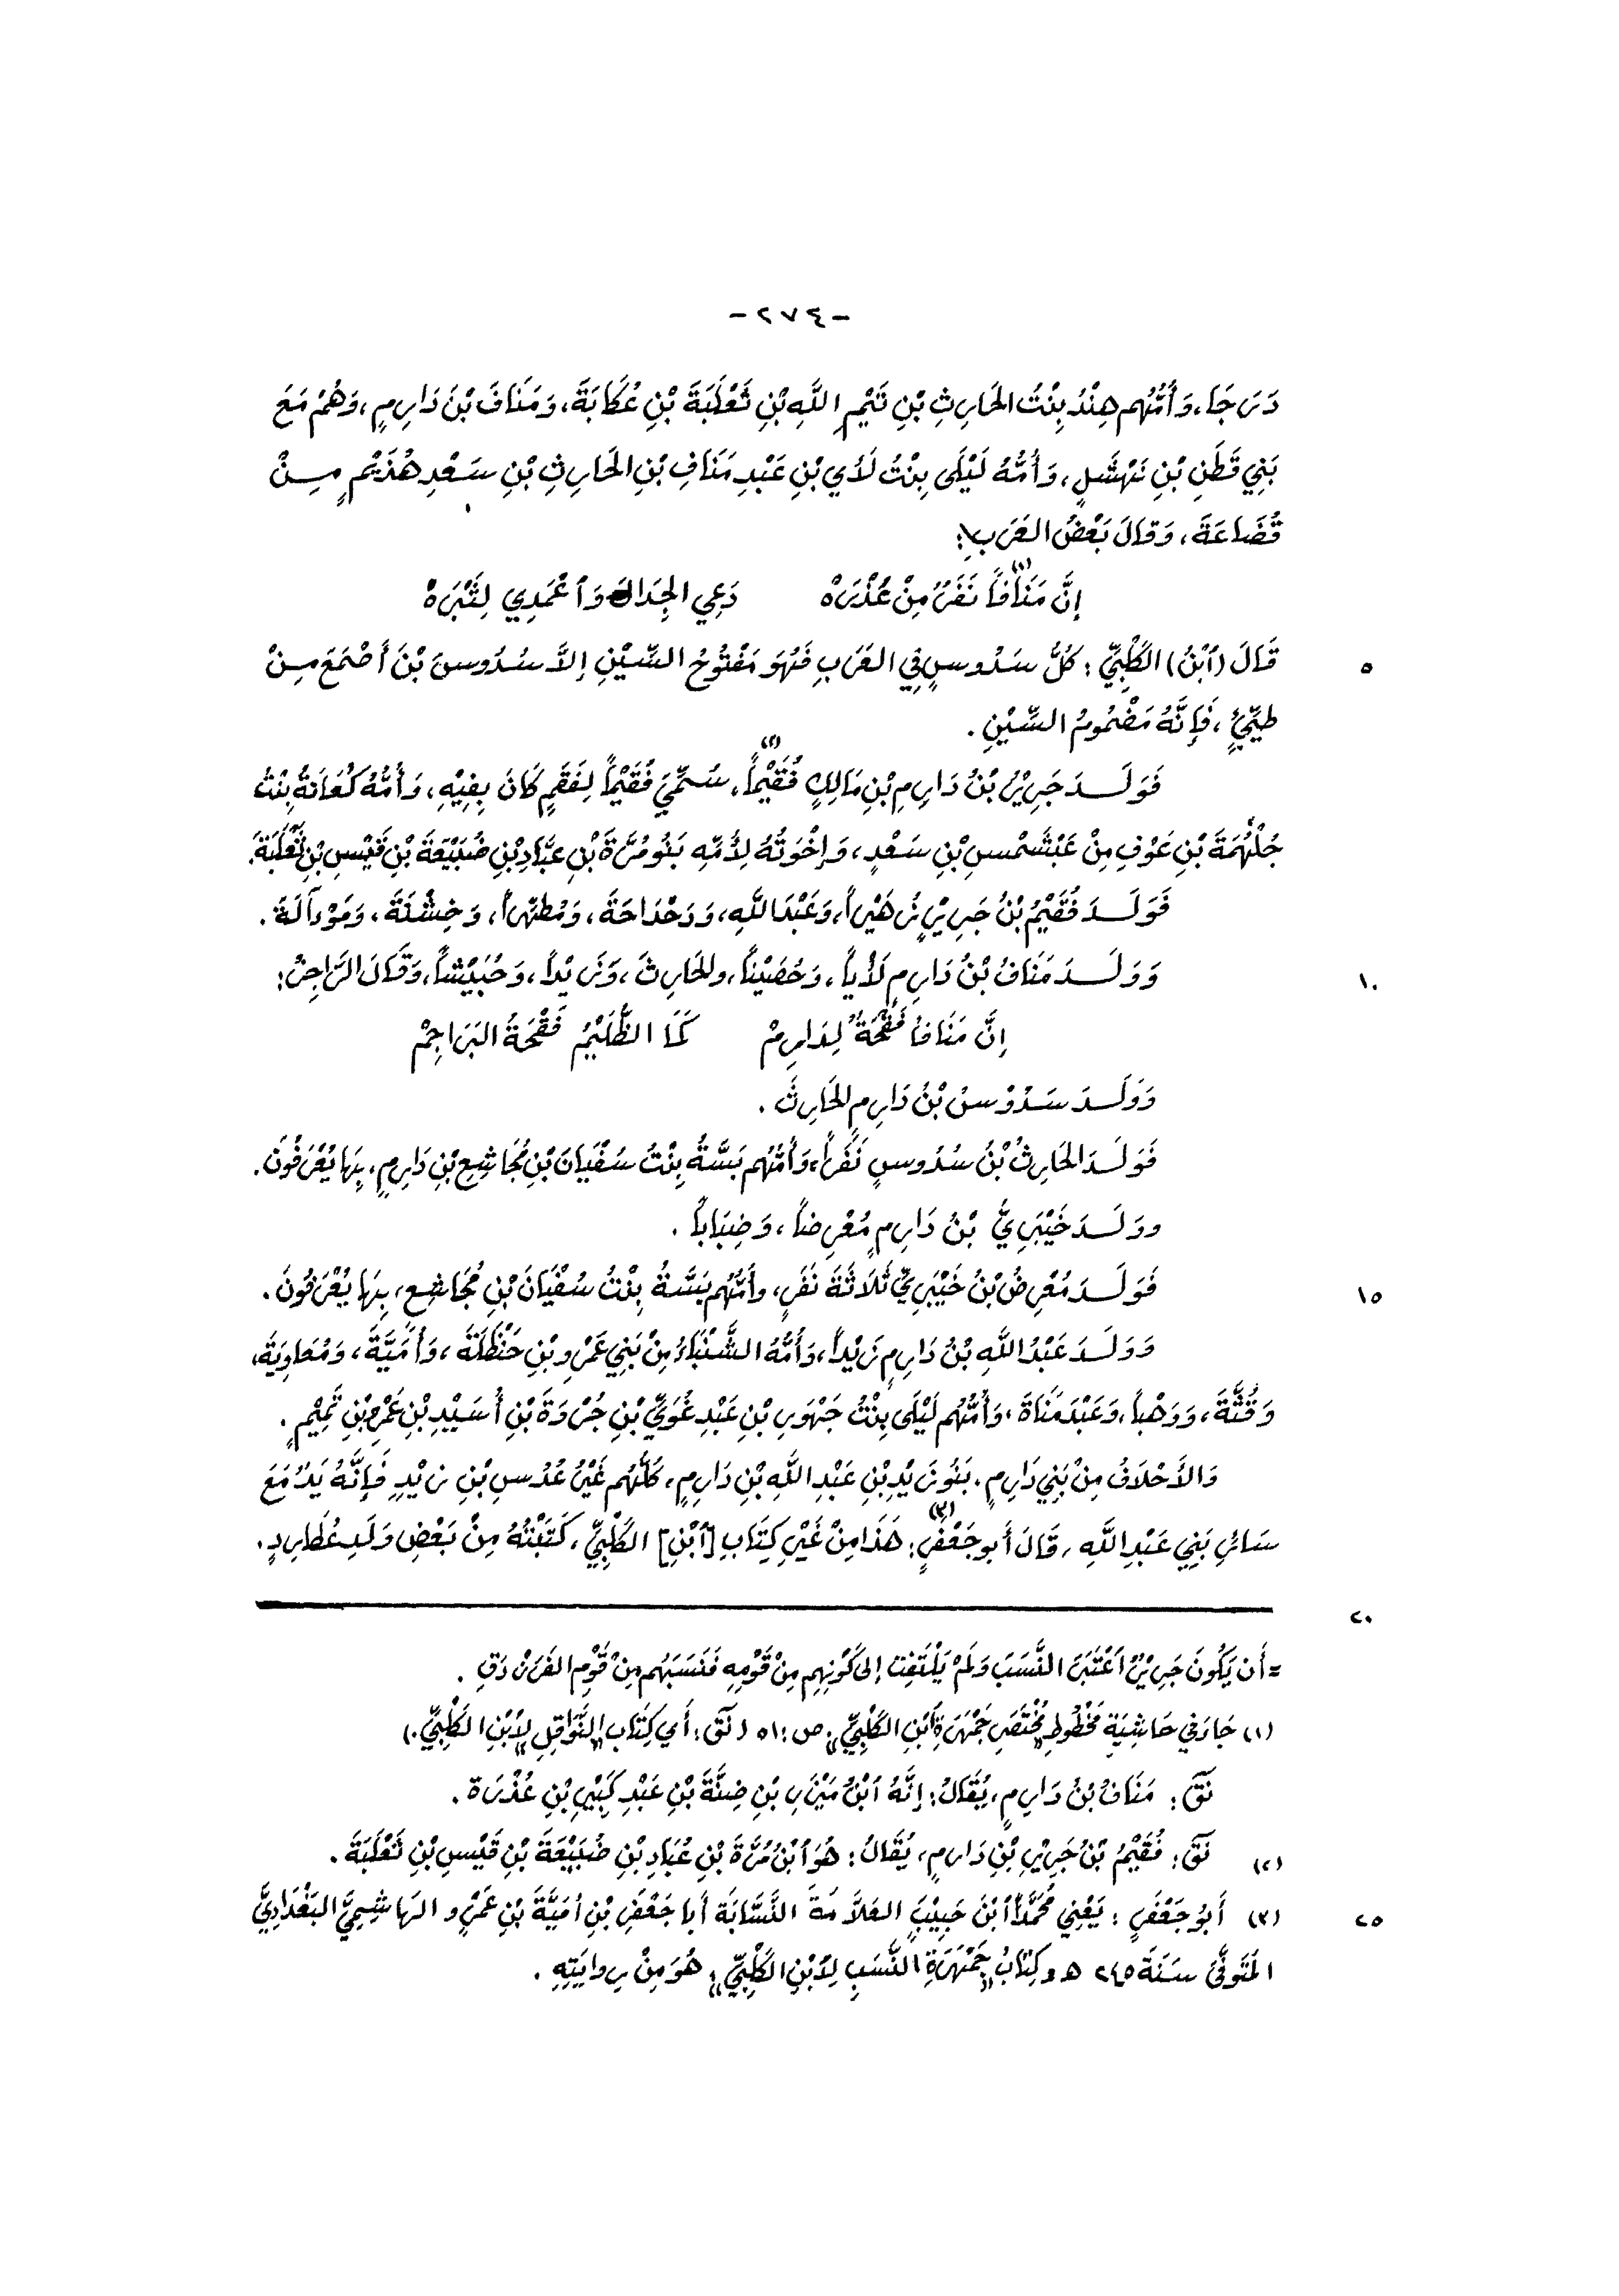 - ٢٧٤ -
دَرَجَا، وَأُمُّهُم هِنْدُ بِنْتُ الحَارِثِ بْنِ تَيْمِ اللَّهِ بْنِ ثَعْلَبَةَ بْنِ عُكَابَةَ، وَمَنَافَ بْنَ دَارِمٍ، وَهُمْ مَعَ
بَنِي قَطَنِ بْنِ نَهْشَلٍ، وَأُمُّهُ لَيْلَى بِنْتُ لَأْيِ بْنِ عَبْدِ مَنَافِ بْنِ الحَارِثِ بْنِ سَعْدِ هُذَيْمٍ مِنْ
قُضَاعَةَ، وَقَالَ بَعْضُ العَرَبِ:
إِنَّ مَنَافاً (١) نَفَرٌ مِنْ عُذْرَهْ دَعِي الجِدَالَ وَٱعْمَدِي لِثَبْرَهْ
٥ قَالَ (ٱبْنُ) الكَلْبِيِّ: كُلُّ سَدُوسٍ فِي العَرَبِ فَهُوَ مَفْتُوحُ السِّيْنِ إلاَّ سُدُوسَ بْنَ أَصْمَعَ مِنْ
طَيِّئٍ، فَإِنَّهُ مَضْمُومُ السِّيْنِ.
فَوَلَدَ جَرِيْرُ بْنُ دَارِمِ بْنِ مَالِكٍ فُقَيْماً (٢)، سُمِّيَ فُقَيْماً لِفَقَمٍ كَانَ بِفِيْهِ، وَأُمُّهُ كُعَانَةُ بِنْتُ
جُلْهُمَةَ بْنِ عَوْفٍ مِنْ عَبْشَمْسِ بْنِ سَعْدٍ، وَإِخْوَتُهُ لِأُمِّهِ بَنُو مُرَّةَ بْنِ عَبَّادِ بْنِ ضُبَيْعَةَ بْنِ قَيْسِ بْنِ ثَعْلَبَةَ.
فَوَلَدَ فُقَيْمُ بْنُ جَرِيْرٍ زُهَيْراً، وَعَبْدَ اللَّهِ، وَدَحْدَاحَةَ، وَمُطَهَّراً، وَخِشْنَةَ، وَمَوْءَلَةَ.
١٠ وَوَلَدَ مَنَافُ بْنُ دَارِمٍ لَأْياً، وَحُصَيْناً، والحَارِثَ، وَزَيْداً، وَحُبَيْشاً، وَقَالَ الرَّاجِزُ:
إِنَّ مَنَافاً فَقْحَةٌ لِدَارِمْ كَمَا الظُّلَيْمُ فَقْحَةُ البَرَاجِمْ
وَوَلَدَ سَدُوْسُ بْنُ دَارِمٍ الحَارِثَ.
فَوَلَدَ الحَارِثُ بْنُ سُدُوسٍ نَفَراً، وَأُمُّهُم بَسَّةُ بِنْتُ سُفْيَانَ بْنِ مُجَاشِعِ بْنِ دَارِمٍ، بِهَا يُعْرَفُونَ.
ووَلَدَ خَيْبَرِيُّ بْنُ دَارِمٍ مُعْرِضاً، وَضِبَاباً.
١٥ فَوَلَدَ مُعْرِضُ بْنُ خَيْبَرِيٍّ ثَلَاثَةَ نَفَرٍ، وأُمُّهُم بَسَّةُ بِنْتُ سُفْيَانَ بْنِ مُجَاشِعٍ، بِهَا يُعْرَفُونَ.
وَوَلَدَ عَبْدُ اللَّهِ بْنُ دَارِمٍ زَيْداً، وَأُمُّهُ الشَّنْبَاءُ مِنْ بَنِي عَمْرِو بْنِ حَنْظَلَةَ، وَأُمَيَّةَ، وَمُعَاوِيَةَ،
وَقُنَّةَ، وَوَهْباً، وَعَبْدَ مَنَاةَ، وَأُمُّهُم لَيْلَى بِنْتُ جَهْوَرِ بْنِ عَبْدِ غُوَيِّ بْنِ جُرْوَةَ بْنِ أُسَيْدِ بْنِ عَمْرِو بْنِ تَمِيْمٍ.
وَالأَحْلَافُ مِنْ بَنِي دَارِمٍ، بَنُو زَيْدِ بْنِ عَبْدِ اللَّهِ بْنِ دَارِمٍ، كُلُّهُم غَيْرُ عُدُسِ بْنِ زَيْدٍ فَإِنَّهُ يَدٌ مَعَ
سَائِرِ بَنِي عَبْدِ اللَّهِ، قَالَ أَبو جَعْفَرٍ (٣): هَذَا مِنْ غَيْرِ كِتَابِ [ٱبْنِ] الكَلْبِيِّ، كَتَبْتُهُ مِنْ بَعْضِ وَلَدِ عُطَارِدٍ.
٢٠
= أَن يَكُونَ جَرِيْرٌ ٱعْتَبَرَ النَّسَبَ وَلَمْ يَلْتَفِتْ إلى كَوْنِهِم مِنْ قَوْمِهِ فَنَسَبَهُم مِنْ قَوْمِ الفَرَزْدَقِ.
(١) جَاءَ فِي حَاشِيَةِ مَخْطُوطِ «مُخْتَصَرِ جَمْهَرَةِ ٱبْنِ الكَلْبِيِّ» ص: ٥١ (نَقَ: أَي كِتَاب «النَّوَاقِلِ» لِٱبْنِ الكَلْبِيِّ.)
نَقَ: مَنَافُ بْنُ دَارِمٍ، يُقَالُ: إِنَّهُ ٱبْنُ مَيْزَرِ بْنِ ضِنَّةَ بْنِ عَبْدِ كَبِيْرِ بْنِ عُذْرَةَ.
(٢) نَقَ: فُقَيْمُ بْنُ جَرِيْرِ بْنِ دَارِمٍ، يُقَالُ: هُوَ ٱبْنُ مُرَّةَ بْنِ عُبَادِ بْنِ ضُبَيْعَةَ بْنِ قَيْسِ بْنِ ثَعْلَبَةَ.
٢٥ (٣) أَبُو جَعْفَرٍ: يَعْنِي مُحَمَّدَاً ٱبْنَ حَبِيْبَ العَلاَّمَةَ النَّسَّابَة أَبا جَعْفَرِ بْنِ أُمَيَّةَ بْنِ عَمْرٍو الهَاشِمِيَّ البَغْدَادِيَّ
المُتَوفَّى سَنَةَ ٢٤٥ هـ وكِتَابُ «جَمْهَرَةِ النَّسَبِ لِٱبْنِ الكَلْبِيِّ» هُوَ مِنْ رِوايَتِهِ.